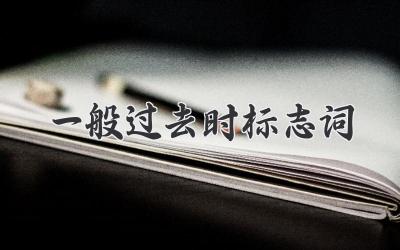 一般过去时标志词